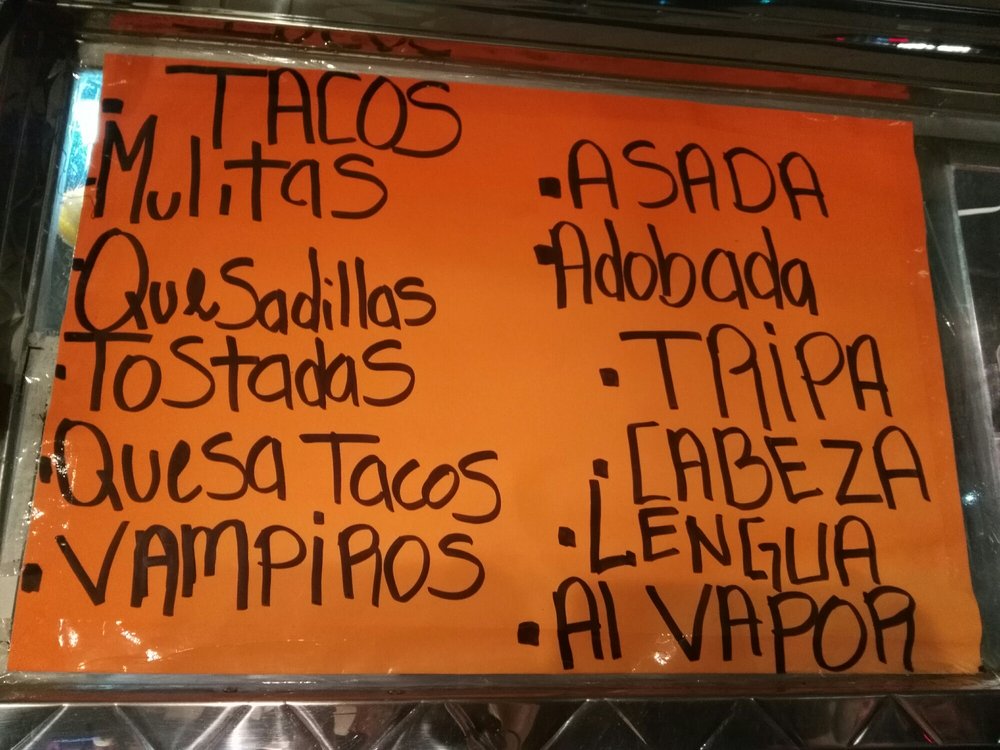 · TACOS
· Mulitas
· Quesadillas
· Tostadas
· Quesa Tacos
· VAMPIROS
· ASADA
· Adobada
· TRiPA
· CABEZA
· LENGUA
· Al VAPOR